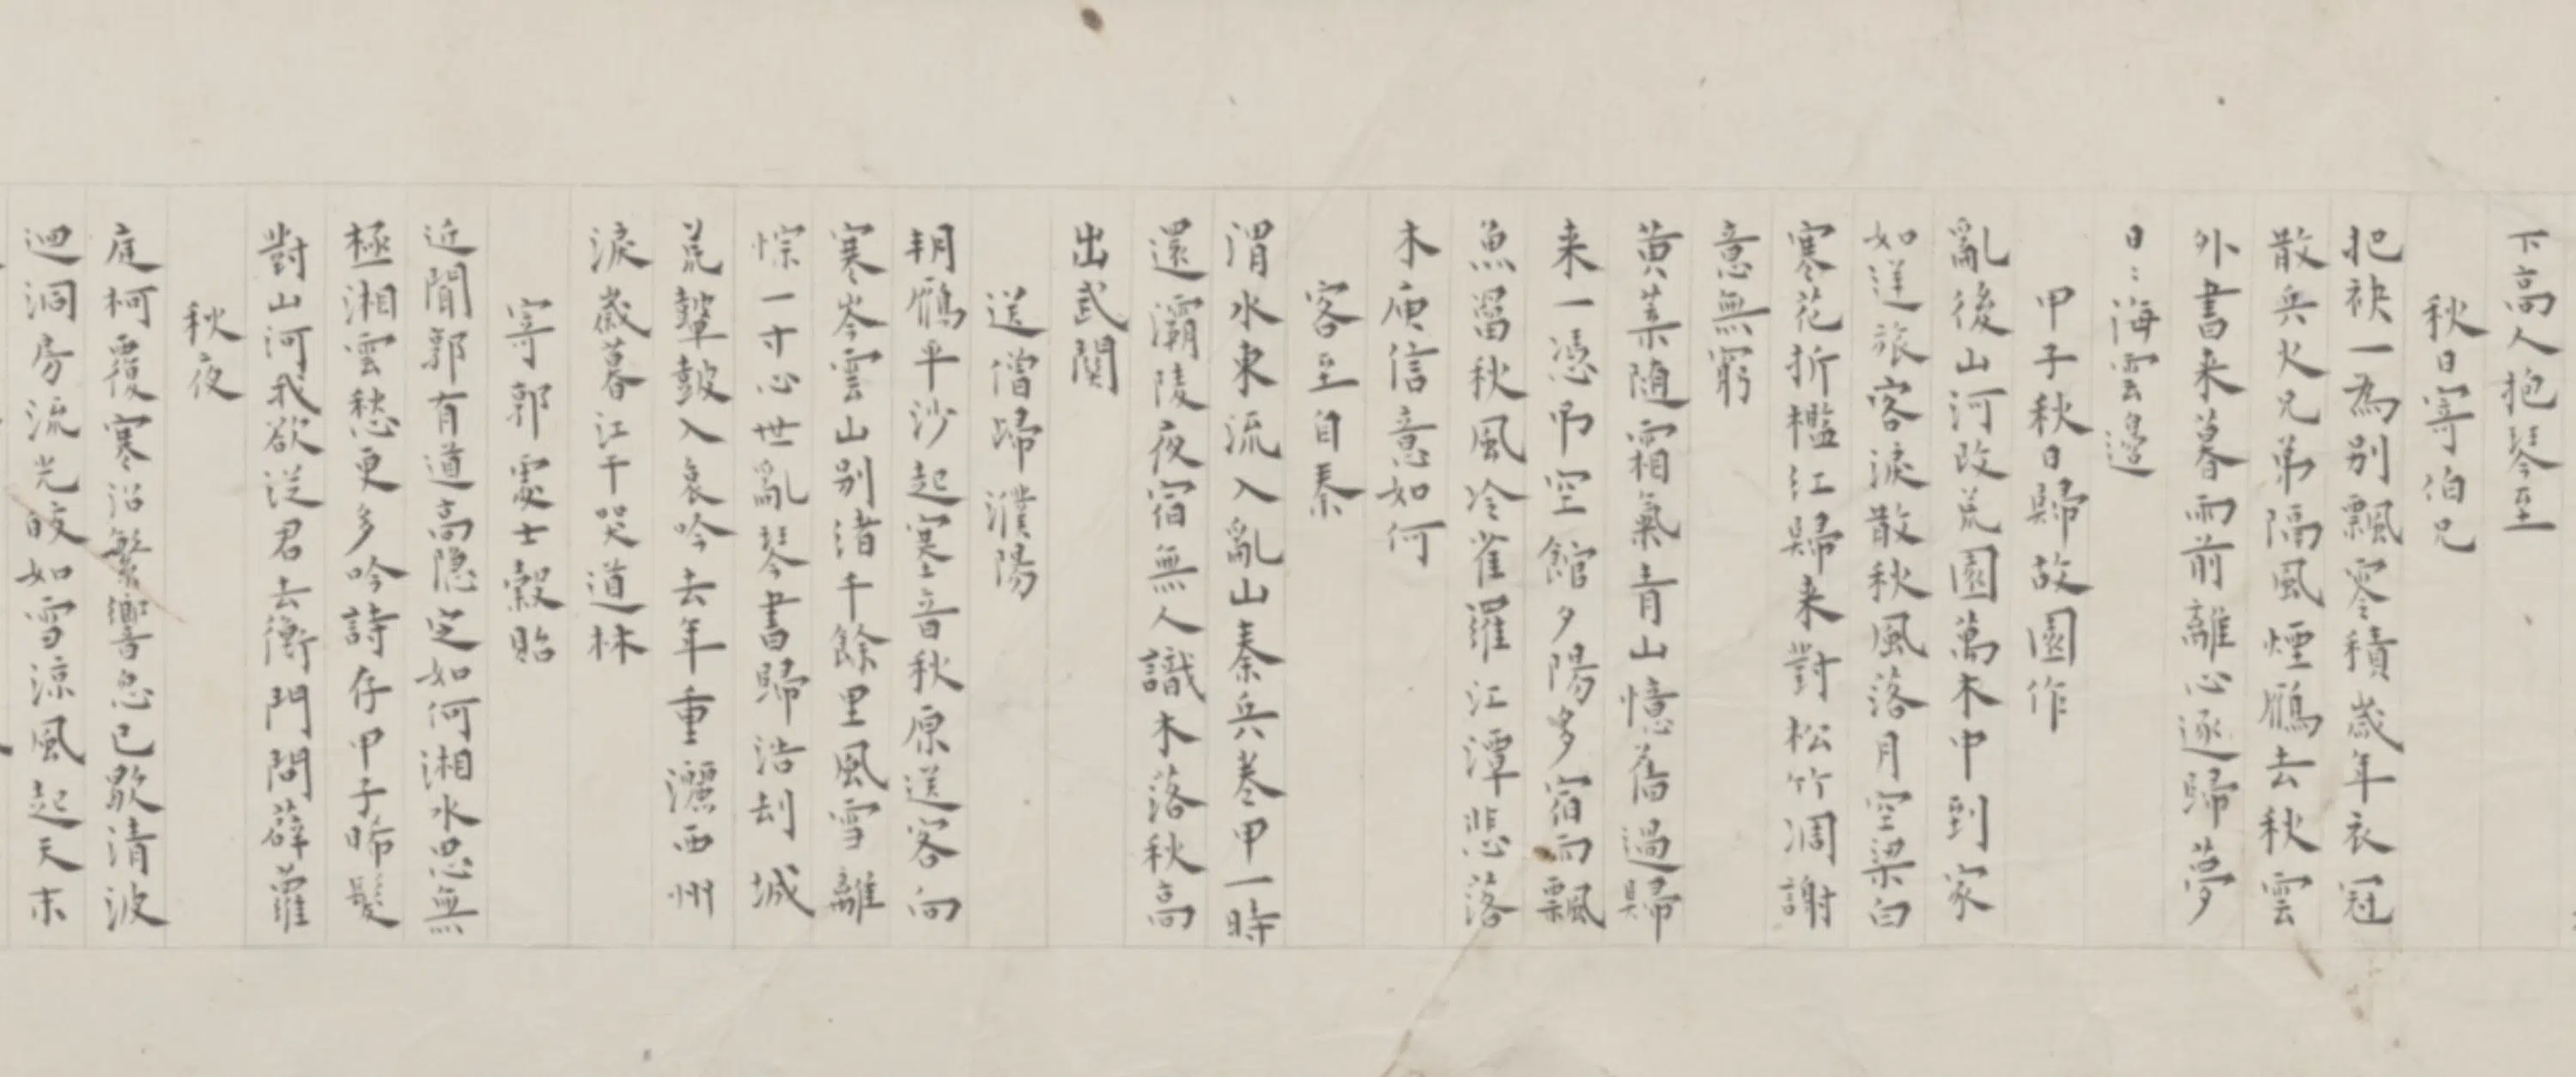 下高人抱琴至
秋日寄伯兄
把袂一為别飄零積歲年衣冠
散兵火兄弟隔風煙鴈去秋雲
外書来暮雨前離心逐歸夢
日〻海雲邊
甲子秋日歸故園作
亂後山河改荒園萬木中到家
如逆旅客淚散秋風落月空梁白
寒花折檻紅歸来對松竹凋謝
意無窮
黄葉随霜氣青山憶舊過歸
来一憑吊空館夕陽多宿雨飄
魚罶秋風冷雀羅江潭悲落
木庾信意如何
客至自秦
渭水東流入亂山秦兵卷甲一時
還灞陵夜宿無人識木落秋高
出武關
送僧歸濮陽
朔鴈平沙起寒音秋原送客向
寒岑雲山别渚千餘里風雪離
悰一寸心世亂琴書歸浩刦城
荒鼙鼓入哀吟去年重灑西州
淚歲暮江干哭道林
寄郭處士㝅貽
近聞郭有道高隐定如何湘水思無
極湘雲愁更多吟詩存甲子晞髮
對山河我欲從君去衡門問薜蘿
秋夜
庭柯覆寒沼繁響忽已歇清波
迴洞房流光皎如雪涼風起天末